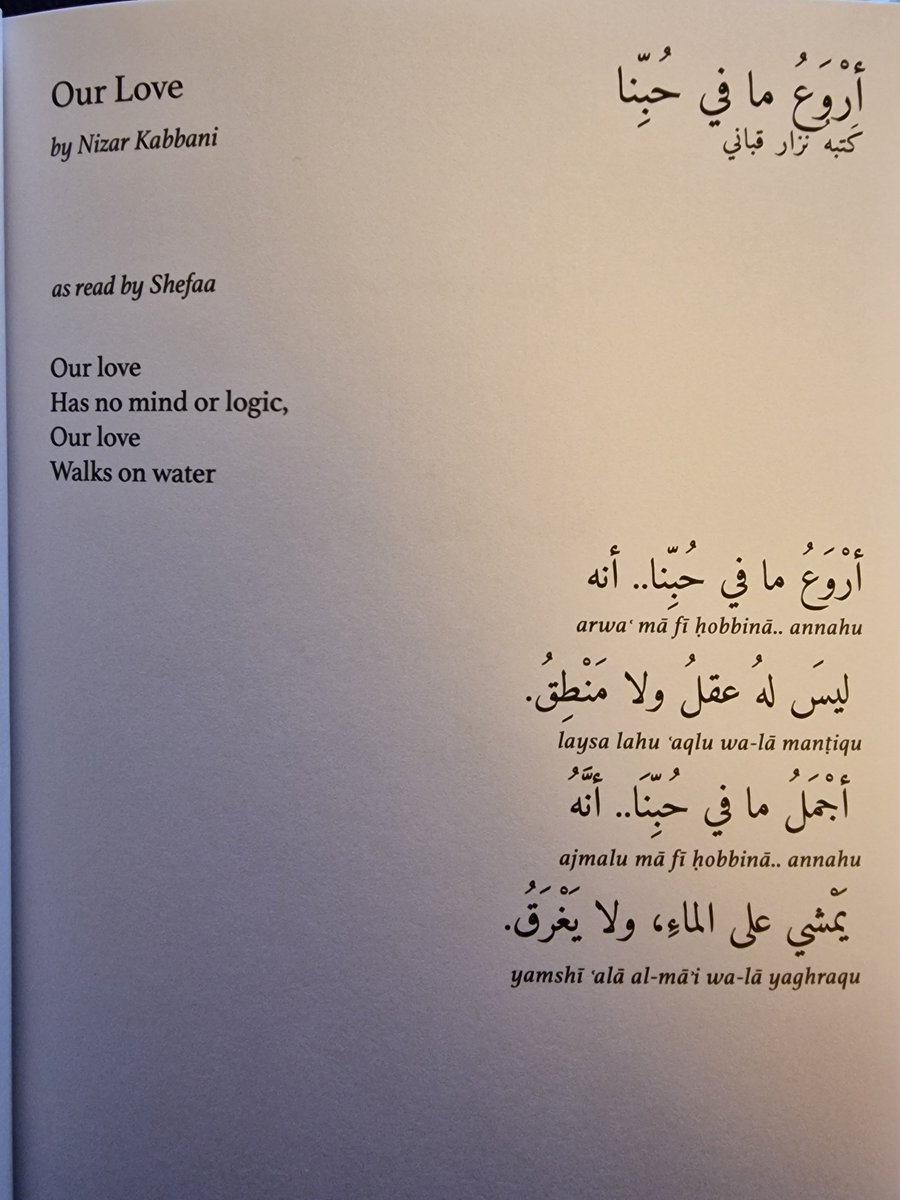 Our Love
by Nizar Kabbani
أرْوَعُ ما في حُبِّنا
كَتبهُ نزار قباني
as read by Shefaa
Our love
Has no mind or logic,
Our love
Walks on water
أرْوَعُ ما في حُبِّنا.. أنه
arwaʿ mā fī ḥobbinā.. annahu
ليسَ لهُ عقلُ ولا مَنْطِقُ.
laysa lahu ʿaqlu wa-lā manṭiqu
أجْمَلُ ما في حُبِّنَا.. أنَّهُ
ajmalu mā fī ḥobbinā.. annahu
يَمْشي على الماءِ، ولا يَغْرَقُ.
yamshī ʿalā al-māʾi wa-lā yaghraqu